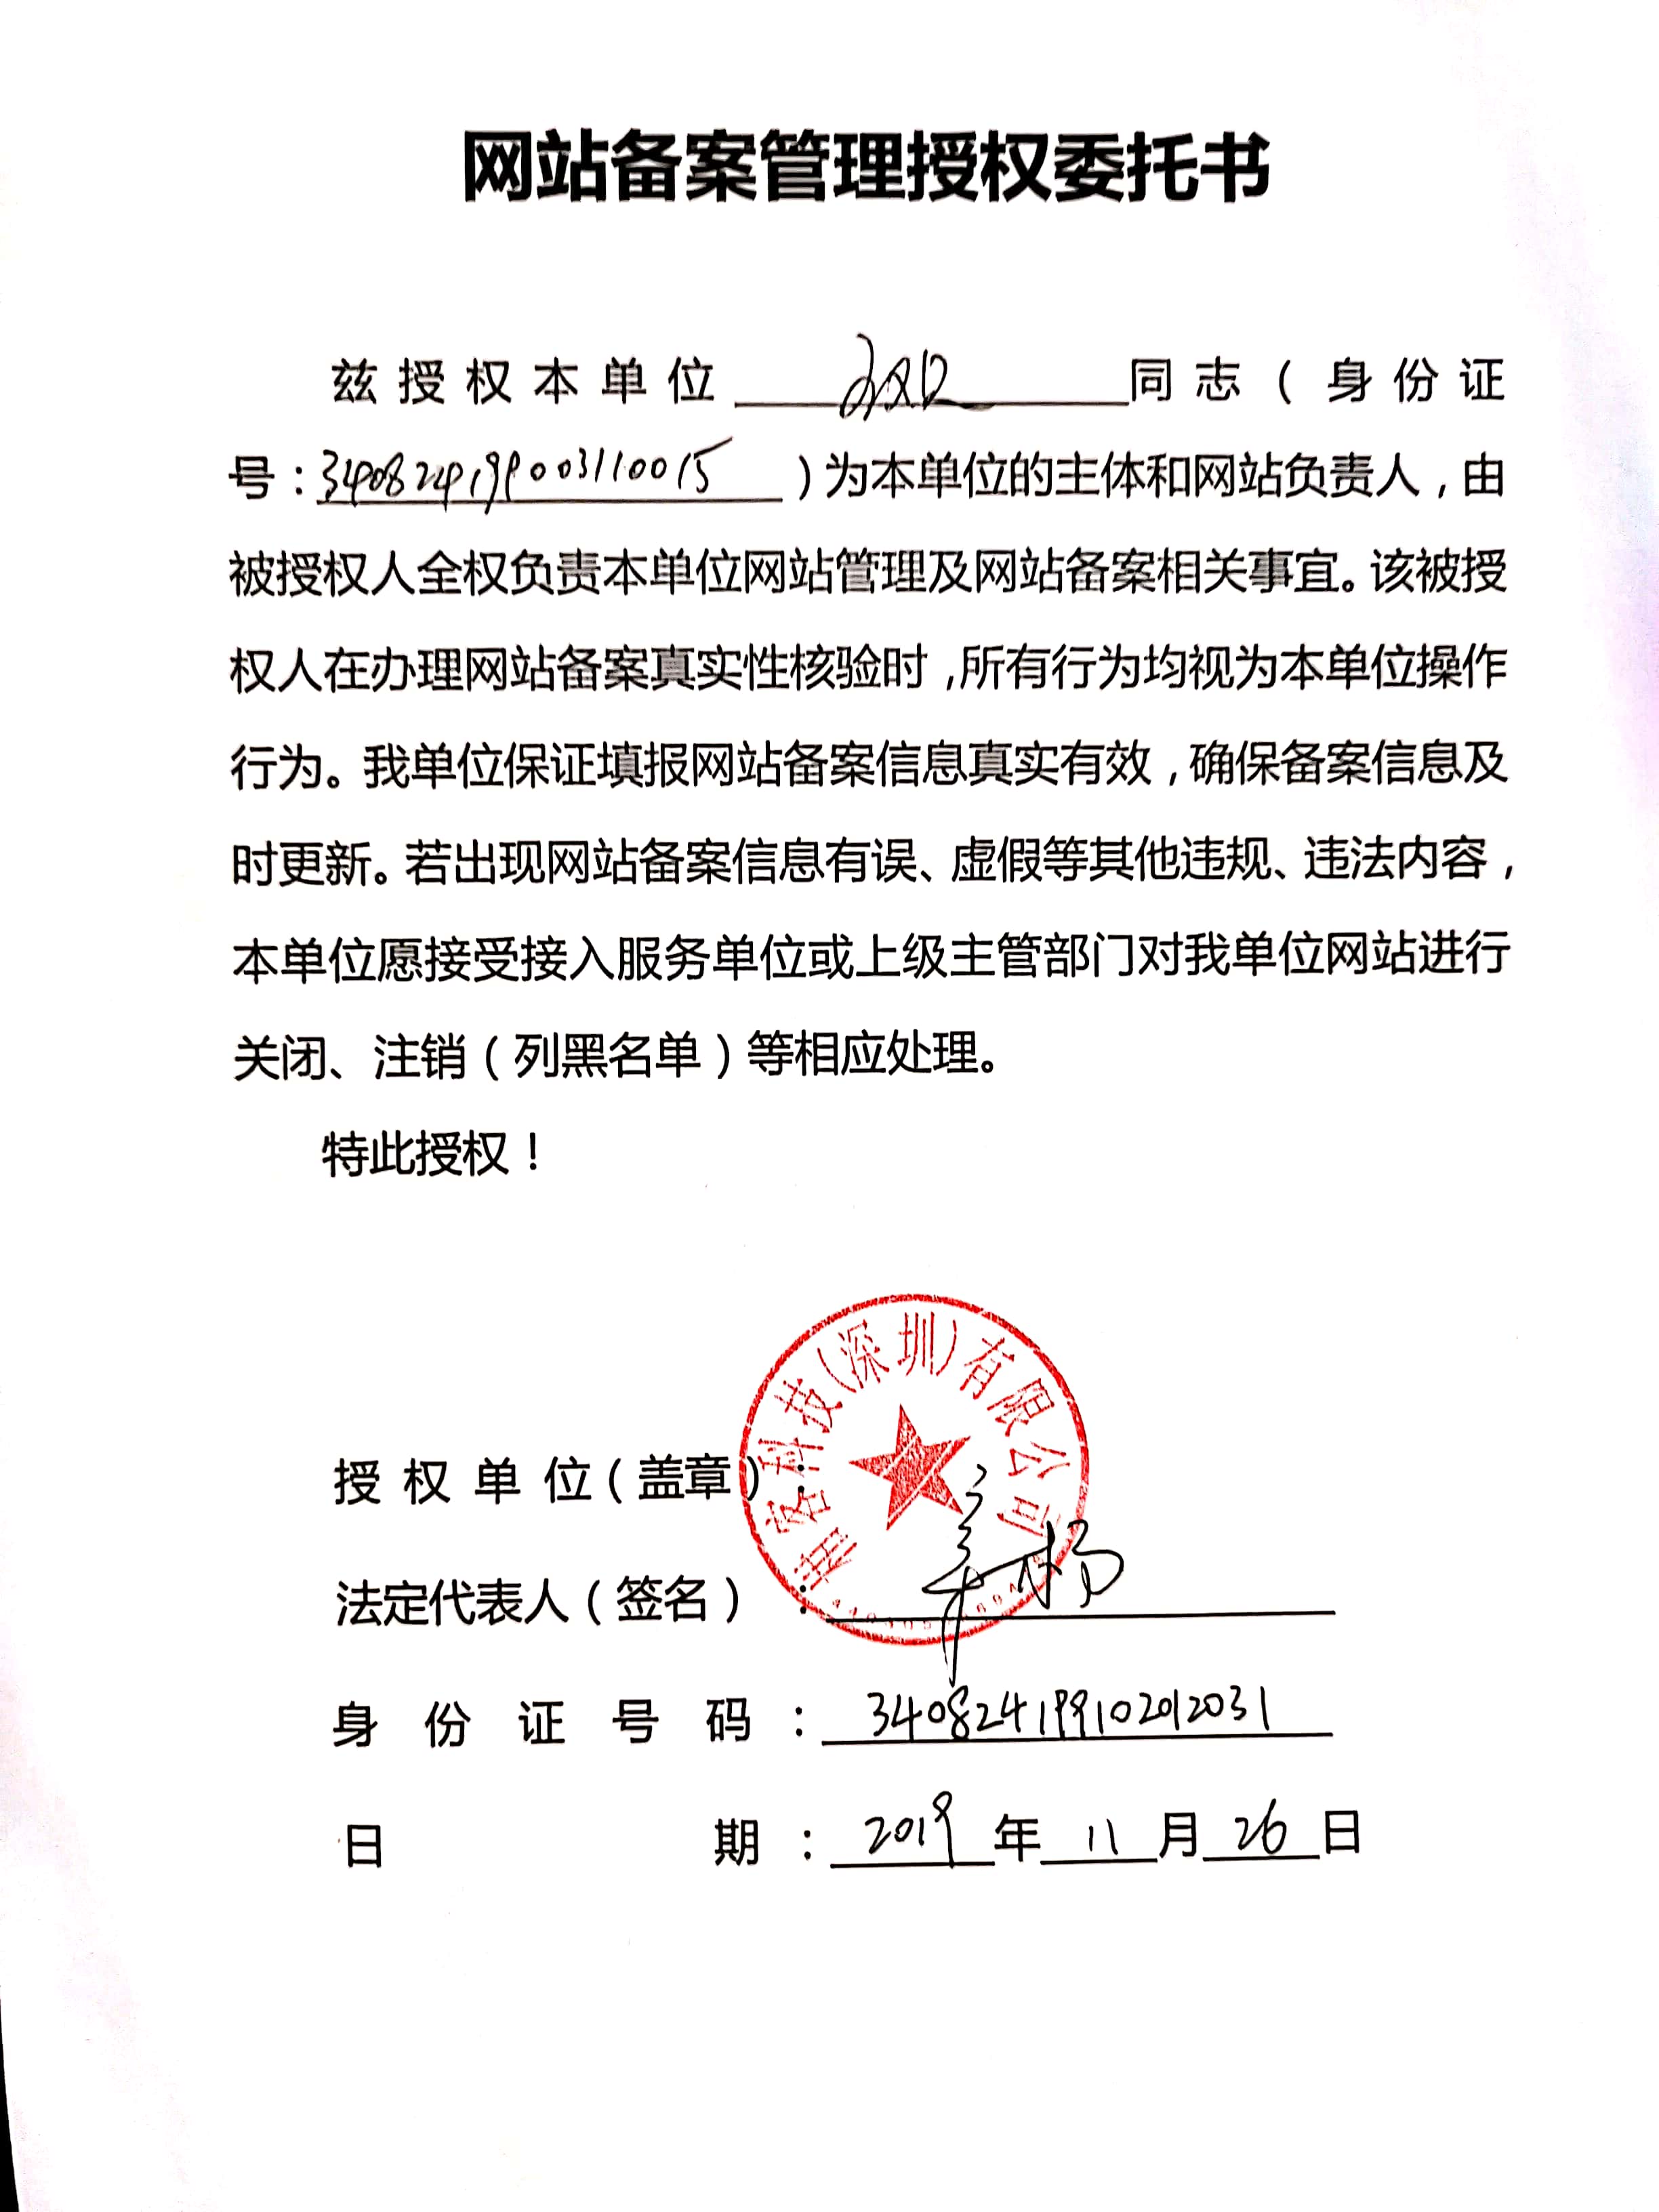 网站备案管理授权委托书
兹授权本单位 同志（身份证
号：340824199003110015）为本单位的主体和网站负责人，由
被授权人全权负责本单位网站管理及网站备案相关事宜。该被授
权人在办理网站备案真实性核验时，所有行为均视为本单位操作
行为。我单位保证填报网站备案信息真实有效，确保备案信息及
时更新。若出现网站备案信息有误、虚假等其他违规、违法内容，
本单位愿接受接入服务单位或上级主管部门对我单位网站进行
关闭、注销（列黑名单）等相应处理。
特此授权！
客科技(深圳)有限公司
授权单位（盖章）：
法定代表人（签名）：
身份证号码：340824199102012031
日期：2019年11月26日